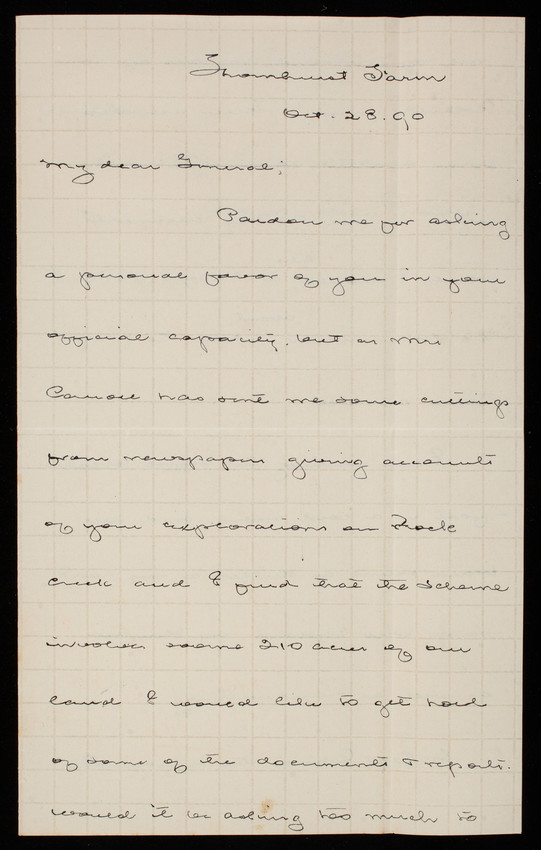 Thornhurst Farm
Oct. 28. 90
My dear General;
Pardon me for asking
a personal favor of you in your
official capacity. but as Mrs
Carroll has sent me some cuttings
from newspapers giving accounts
of your explorations on Rock
creek and I find that the scheme
involves some 210 acres of our
land I would like to get hold
of some of the documents & reports.
would it be asking too much to